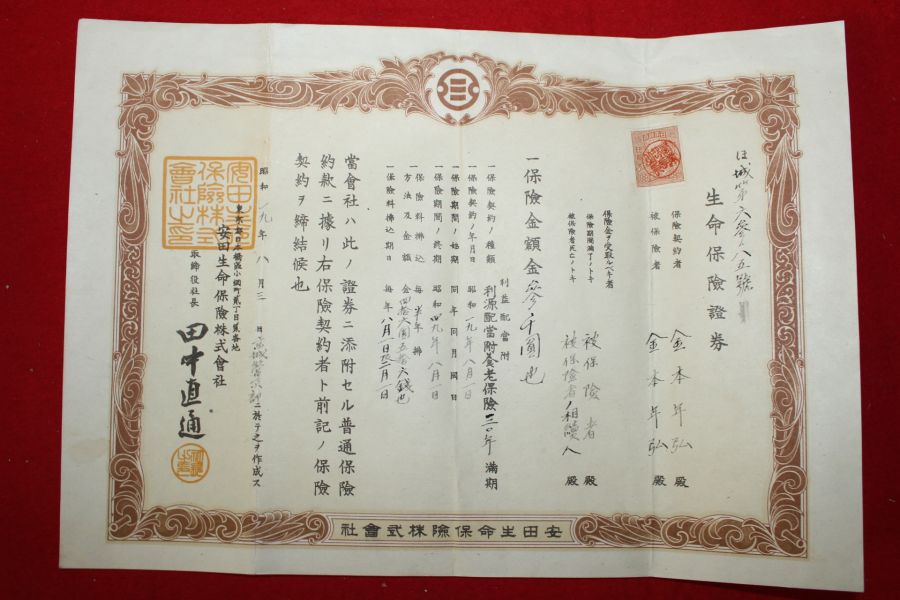 生命保險證券
保險契約者 金本年弘 殿
被保險者 金本年弘 殿
保險金ヲ受取ルベキ者
保險期間滿了ノトキ 被保險者 殿
被保險者死亡ノトキ 被保險者ノ相續人 殿
一保險金額金參千圓也
一保險契約ノ種類 利益配當附 利源配當附養老保險三〇年滿期
一保險契約ノ年月日 昭和一九年八月一日
一保險期間ノ始期 同年同月同日
一保險期間ノ終期 昭和四九年八月一日
一保險料拂込方法及金額 每半年拂 金四拾六圓五拾六錢也
一保險料拂込期日 每年八月一日及二月一日
當會社ハ此ノ證券ニ添附セル普通保險
約款ニ據リ右保險契約者ト前記ノ保險
契約ヲ締結候也
昭和一九年八月三日 ニ於テ之ヲ作成ス
東京都日本橋區小網町貳丁目 番地
安田生命保險株式會社
取締役社長 田中直通
安田生命保險株式會社